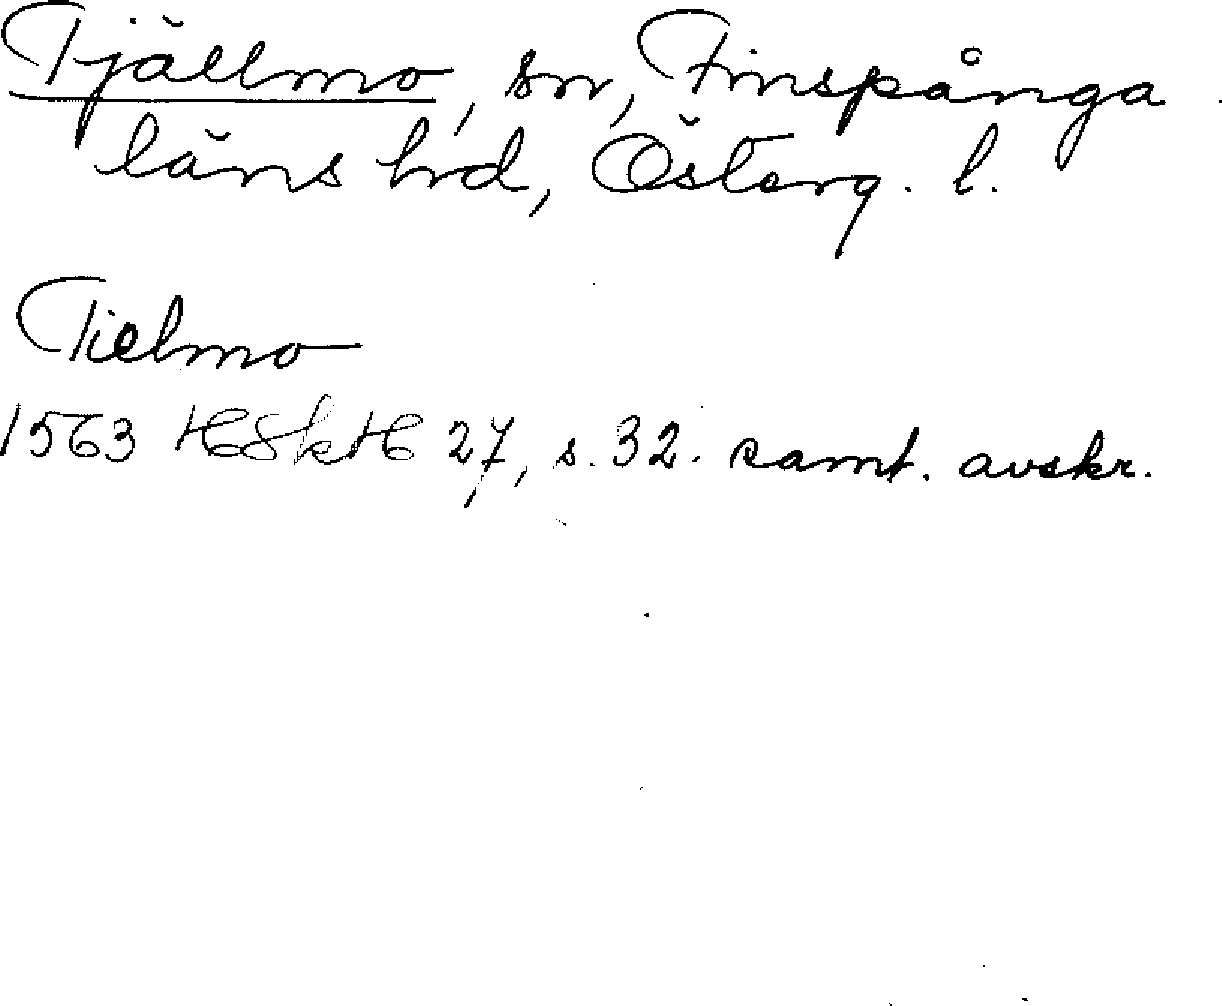 Tjällmo, sn, Finspånga
läns hrd, Österg. l.
Tielmo
1563 HSkH 27, s. 32. samt. avskr.